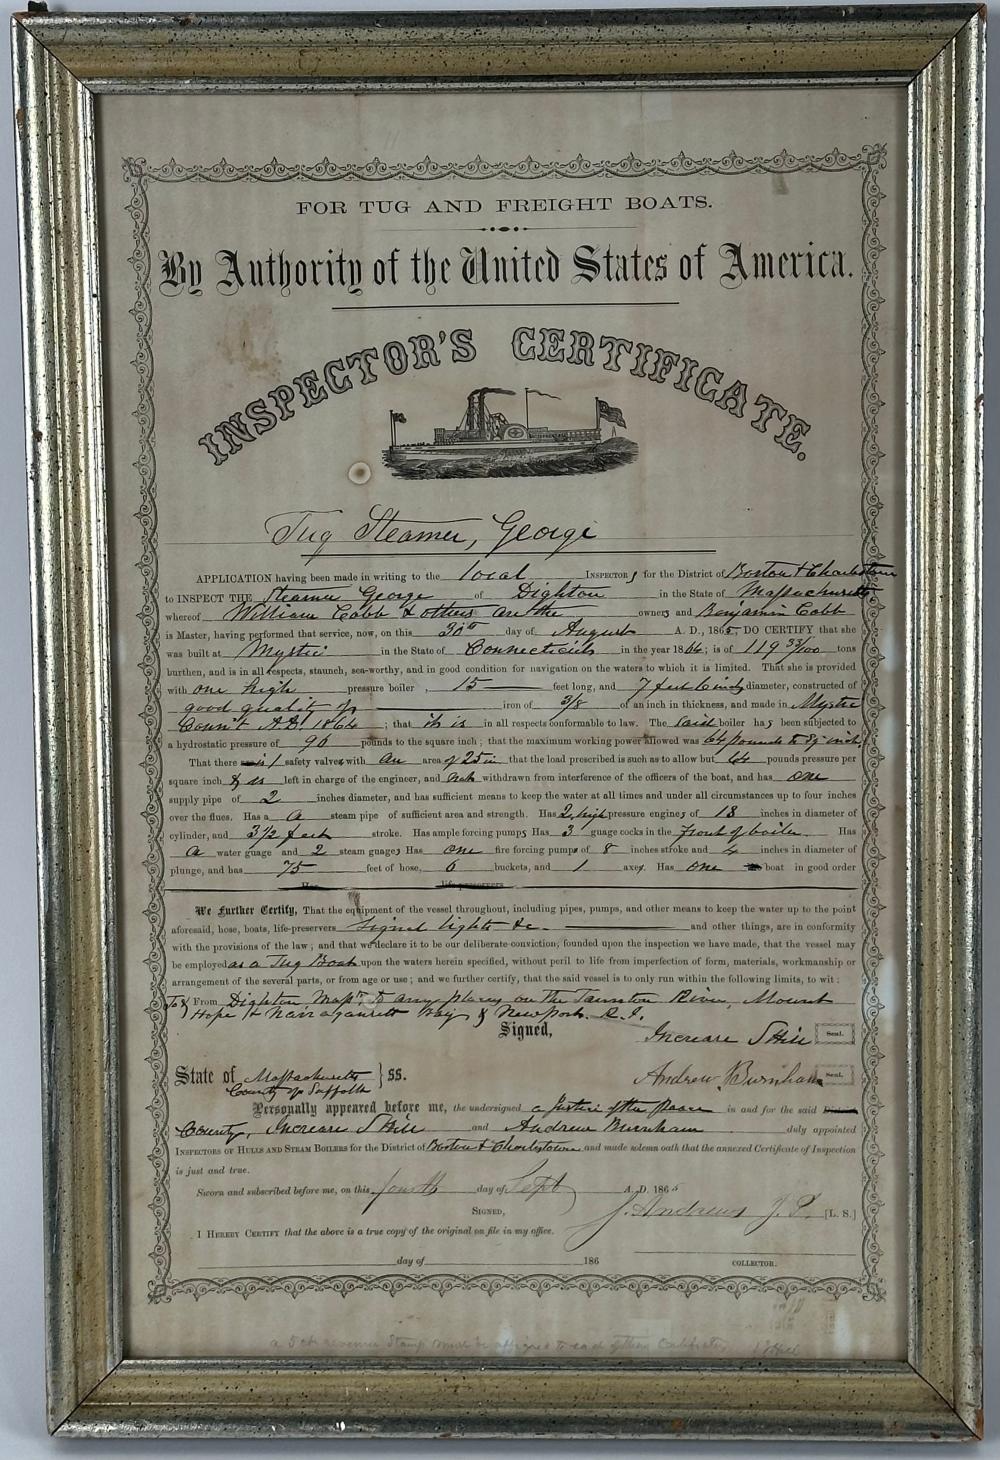 FOR TUG AND FREIGHT BOATS.
By Authority of the United States of America.
INSPECTOR'S CERTIFICATE.
Tug Steamer, George
APPLICATION having been made in writing to the local INSPECTORs for the District of Boston & Charlestown
to INSPECT THE Steamer George of Dighton in the State of Massachusetts
whereof William Cobb & others are the owners and Benjamin Cobb
is Master, having performed that service, now, on this 30th day of August A. D., 1865, DO CERTIFY that she
was built at Mystic in the State of Connecticut in the year 1864; is of 119 33/100 tons
burthen, and is in all respects, staunch, sea-worthy, and in good condition for navigation on the waters to which it is limited. That she is provided
with one high pressure boiler, 15 feet long, and 7 feet 6 inchs diameter, constructed of
good quality of iron of 3/8 of an inch in thickness, and made in Mystic
Conn't A.D. 1864; that it is in all respects conformable to law. The said boiler has been subjected to
a hydrostatic pressure of 96 pounds to the square inch; that the maximum working power allowed was 64 pounds to Sq. inch.
That there is 1 safety valve with an area of 25 in that the load prescribed is such as to allow but 64 pounds pressure per
square inch & is left in charge of the engineer, and not withdrawn from interference of the officers of the boat, and has one
supply pipe of 2 inches diameter, and has sufficient means to keep the water at all times and under all circumstances up to four inches
over the flues. Has a steam pipe of sufficient area and strength. Has 2, high pressure engines of 18 inches in diameter of
cylinder, and 3 1/2 feet stroke. Has ample forcing pumps Has 3 guage cocks in the front of boiler. Has
a water guage and 2 steam guages Has one fire forcing pump of 8 inches stroke and 4 inches in diameter of
plunge, and has 75 feet of hose, 6 buckets, and 1 axe. Has one boat in good order
Has life-preservers
We Further Certify, That the equipment of the vessel throughout, including pipes, pumps, and other means to keep the water up to the point
aforesaid, hose, boats, life-preservers Signal lights &c. and other things, are in conformity
with the provisions of the law; and that we declare it to be our deliberate conviction, founded upon the inspection we have made, that the vessel may
be employed as a Tug Boat upon the waters herein specified, without peril to life from imperfection of form, materials, workmanship or
arrangement of the several parts, or from age or use; and we further certify, that the said vessel is to only run within the following limits, to wit:
To & From Dighton, Mass. to any places on the Taunton River, Mount
Hope & Narragansett Bay & Newport. R. I.
Signed,
Increase S Hill Seal.
Andrew Burnham Seal.
State of Massachusetts } ss.
County of Suffolk
Personally appeared before me, the undersigned a Justice of the Peace in and for the said District
County, Increase S Hill and Andrew Burnham duly appointed
INSPECTORS OF HULLS AND STEAM BOILERS for the District of Boston & Charlestown and made solemn oath that the annexed Certificate of Inspection
is just and true.
Sworn and subscribed before me, on this fourth day of Sept A. D. 1865
SIGNED, J. Andrews J. P. [L. S.]
I HEREBY CERTIFY that the above is a true copy of the original on file in my office.
day of 186 COLLECTOR.
a 5 ct revenue Stamp must be affixed to each of these Certificates